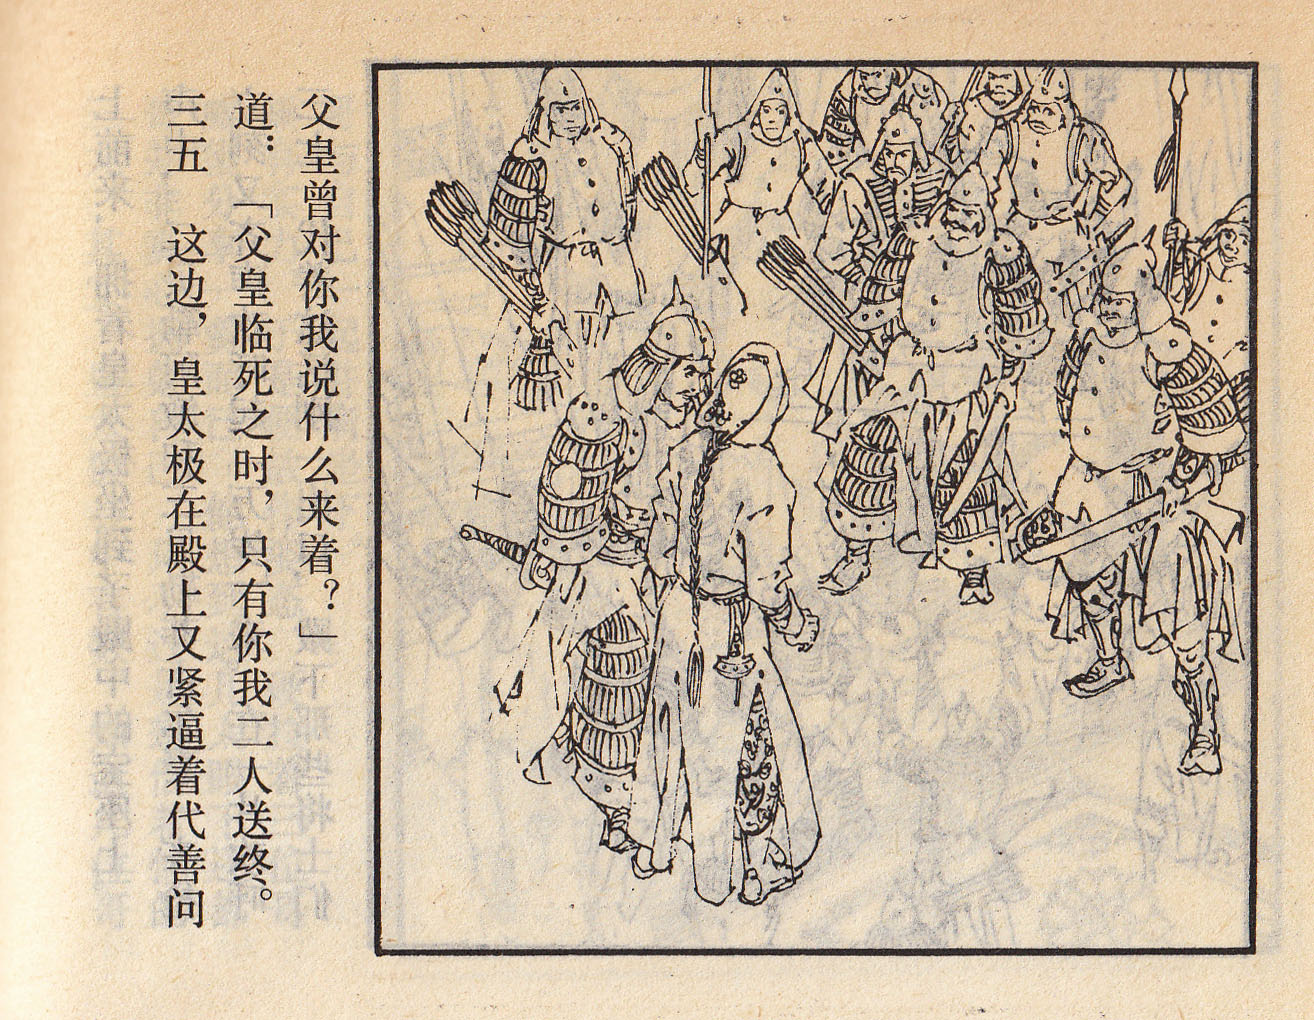 三五　这边，皇太极在殿上又紧逼着代善问
道：「父皇临死之时，只有你我二人送终。
父皇曾对你我说什么来着？」